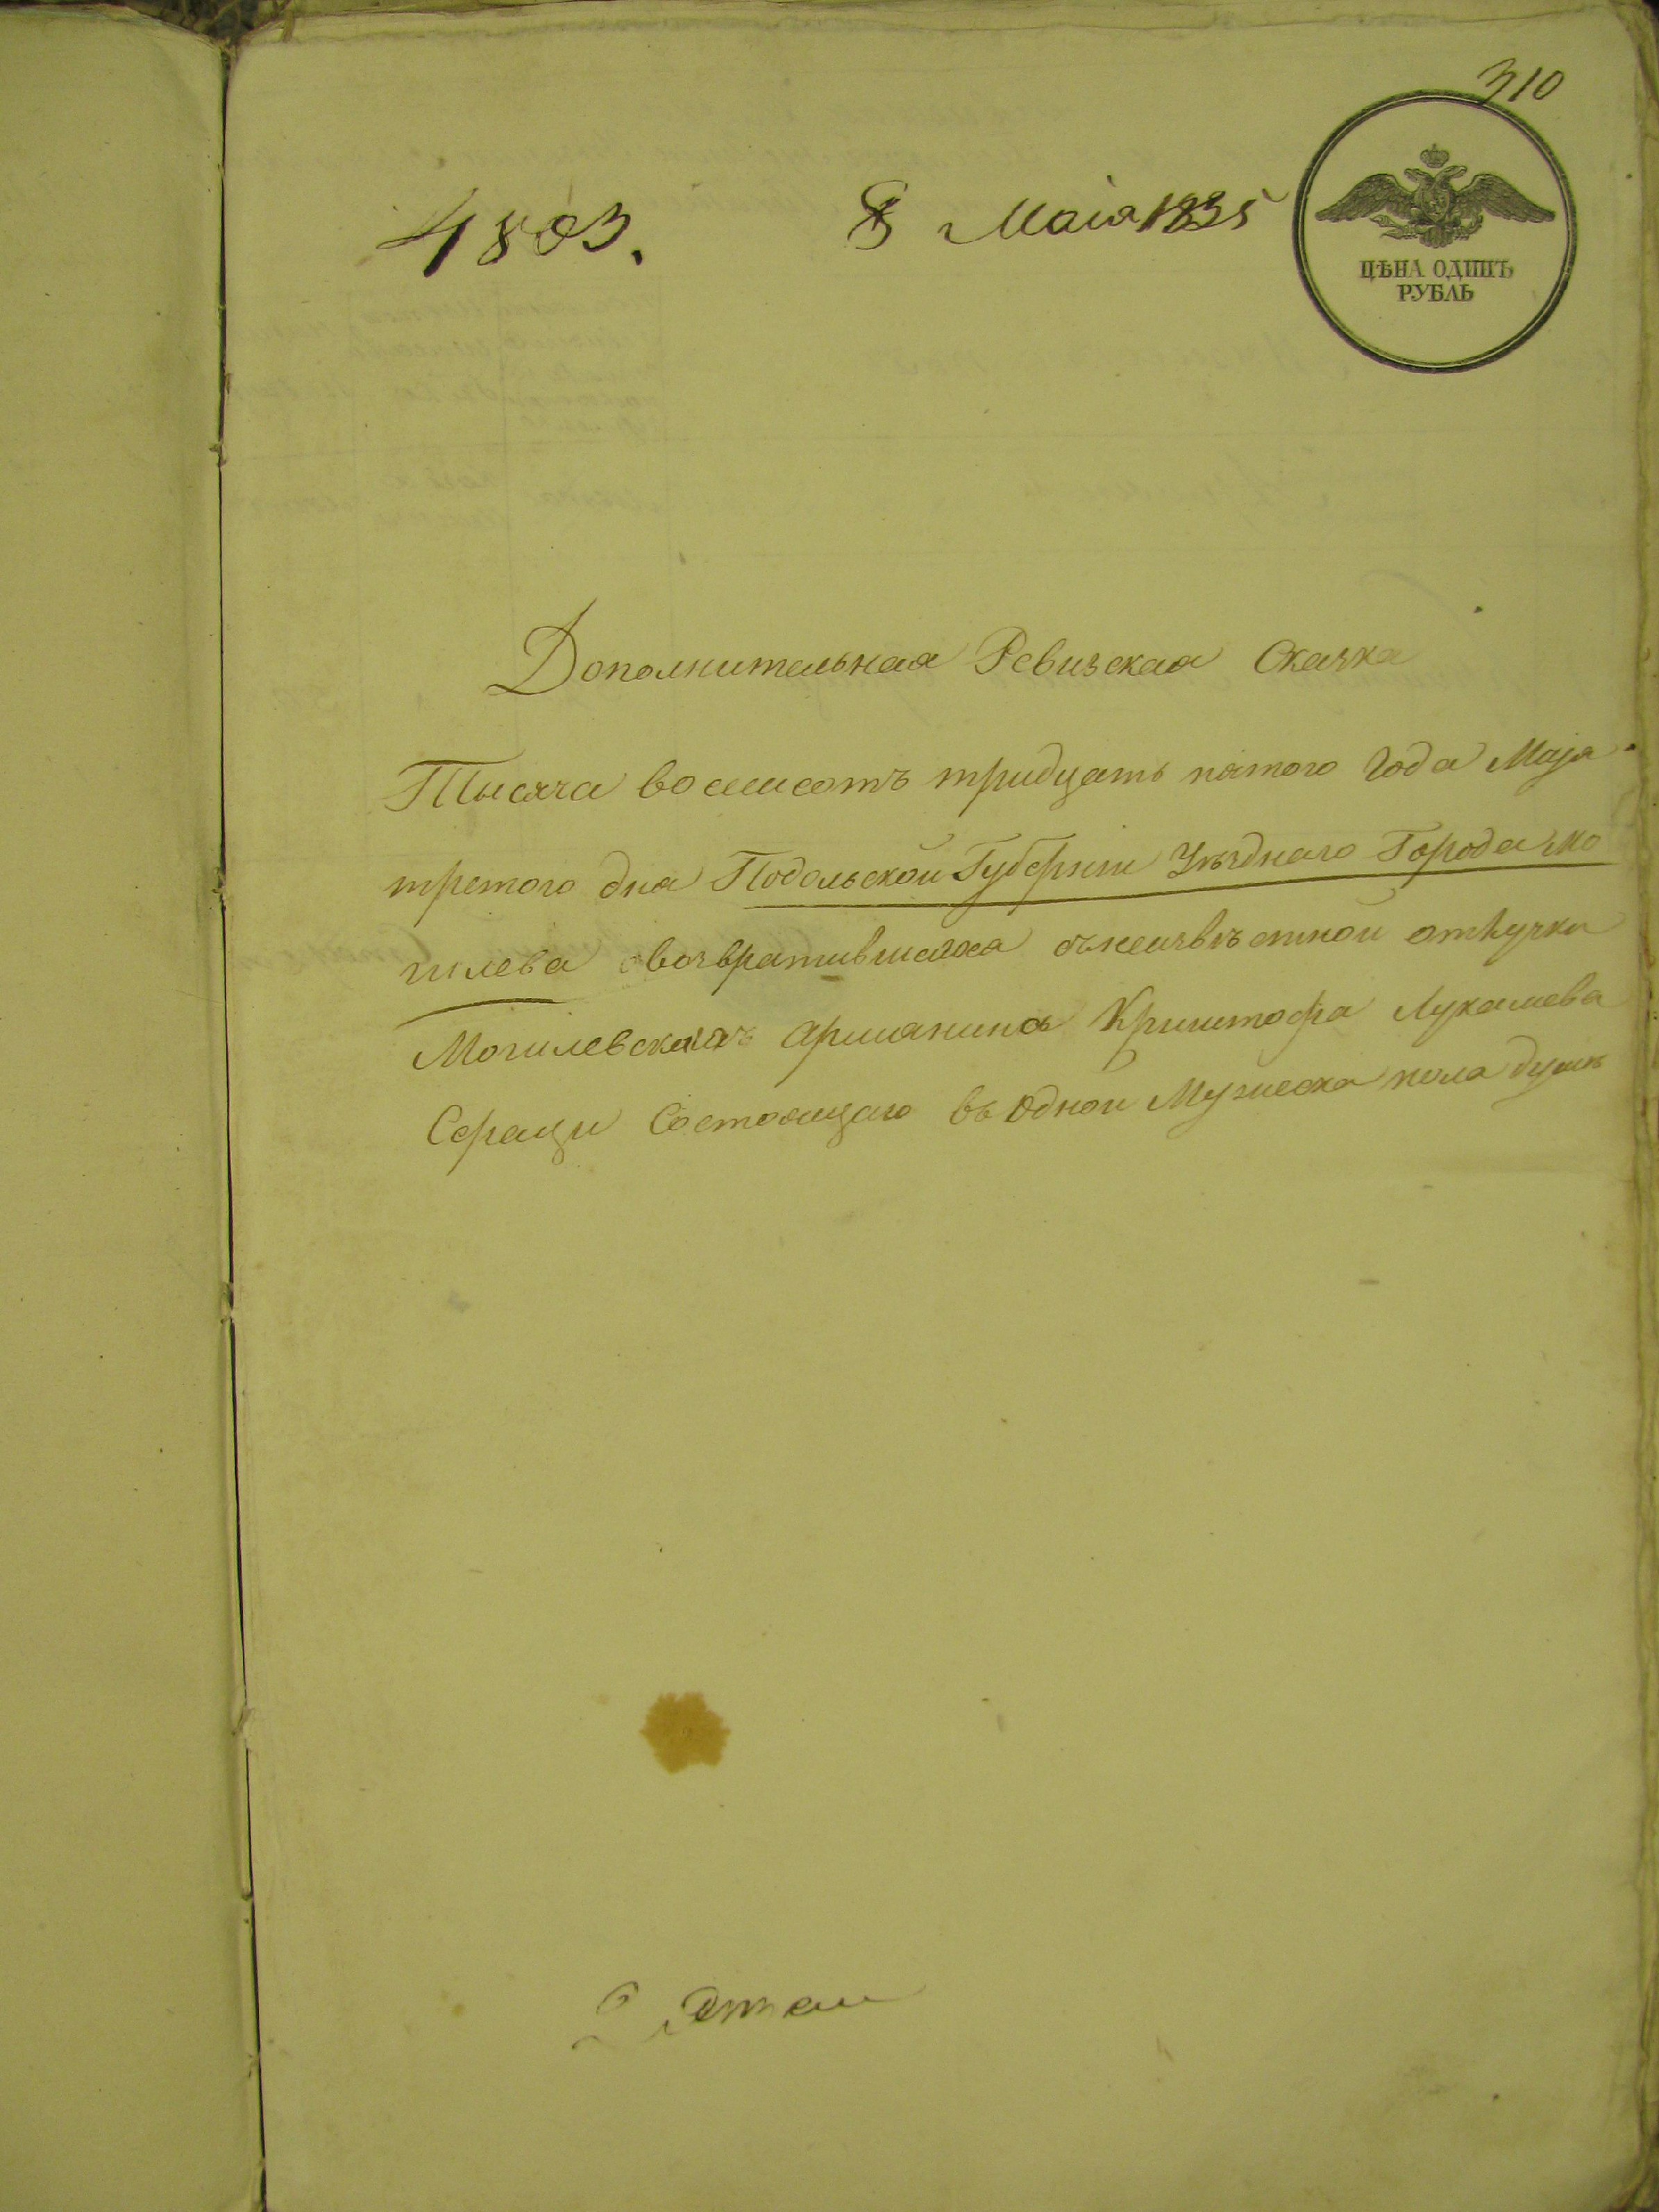 310
4803. 8 Маія 1835
ЦѢНА ОДИНЪ
РУБЛЬ
Дополнительная Ревизская Сказка
Тысяча восемсотъ тридцать пятого Года Маја
третого дня Подольской Губерніи Уѣзднаго Города Мо
гилева возвратившагося съ неизвѣстной отлучки
Могилевскаго Армянина Криштофа Лукашева
Серащи Состоящаго въ Одной Мужеска пола душѣ